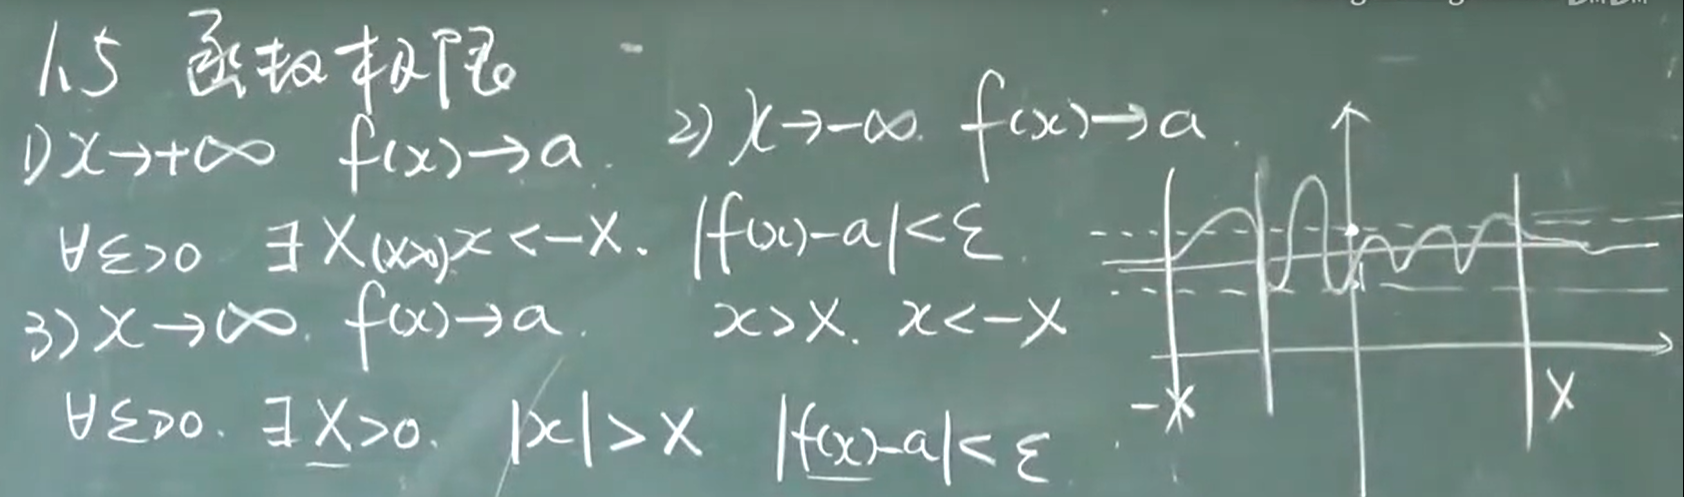 1.5 函数极限
1) x→+∞ f(x)→a. 2) x→-∞. f(x)→a.
∀ε>0 ∃X(X>0) x<-X. |f(x)-a|<ε.
3) x→∞. f(x)→a. x>X. x<-X
∀ε>0. ∃X>0. |x|>X |f(x)-a|<ε
-X X